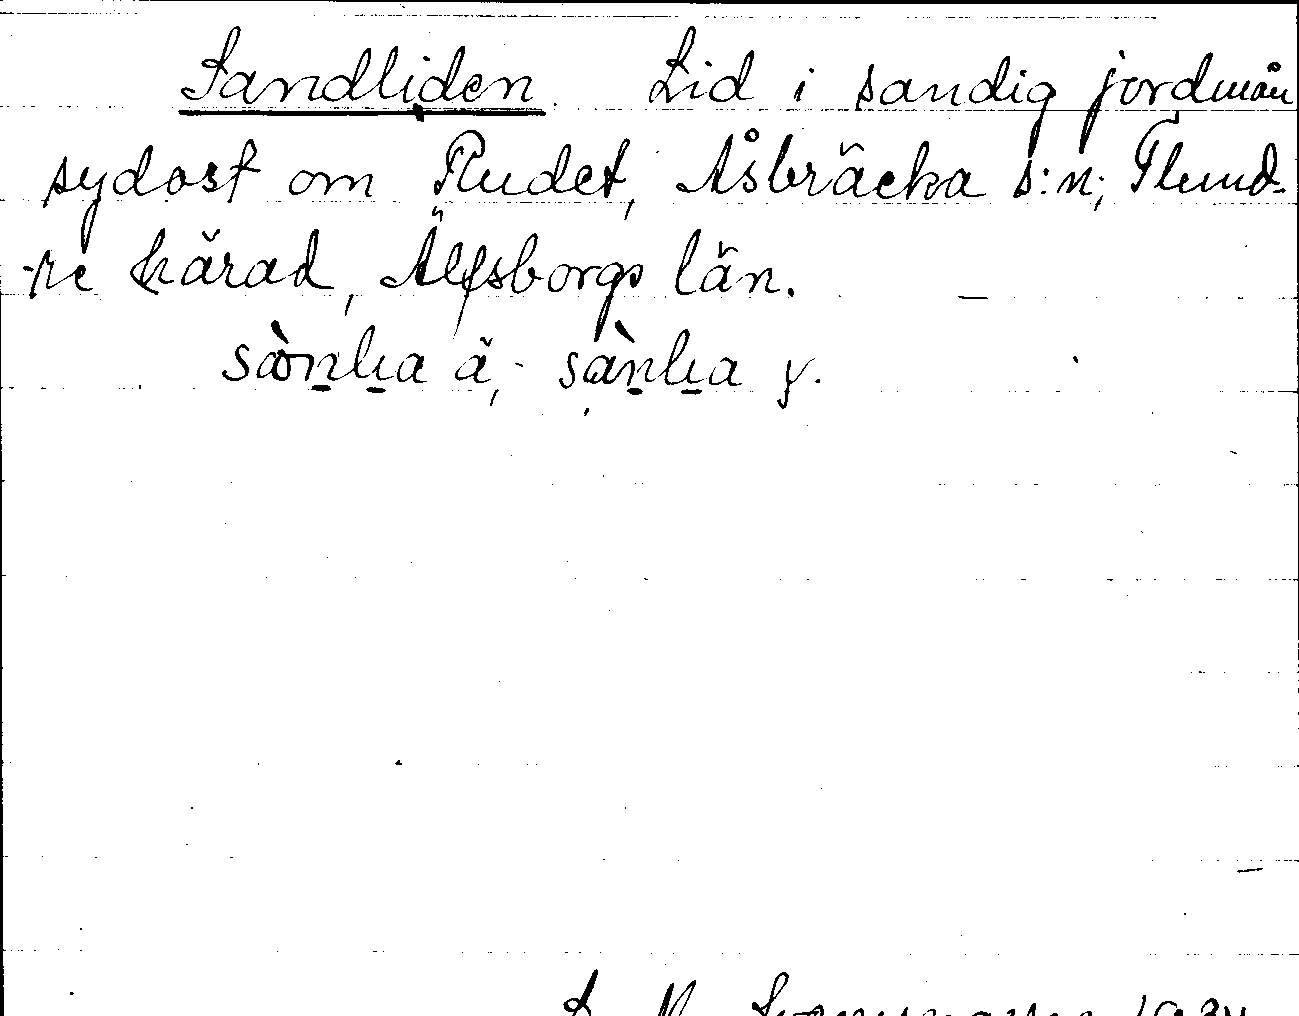 Sandliden. Lid i sandig jordmån
sydost om Rudet, Åsbräcka s:n, Flund-
-re härad, Älfsborgs län.
sànlia ä, sànlia y.
1934